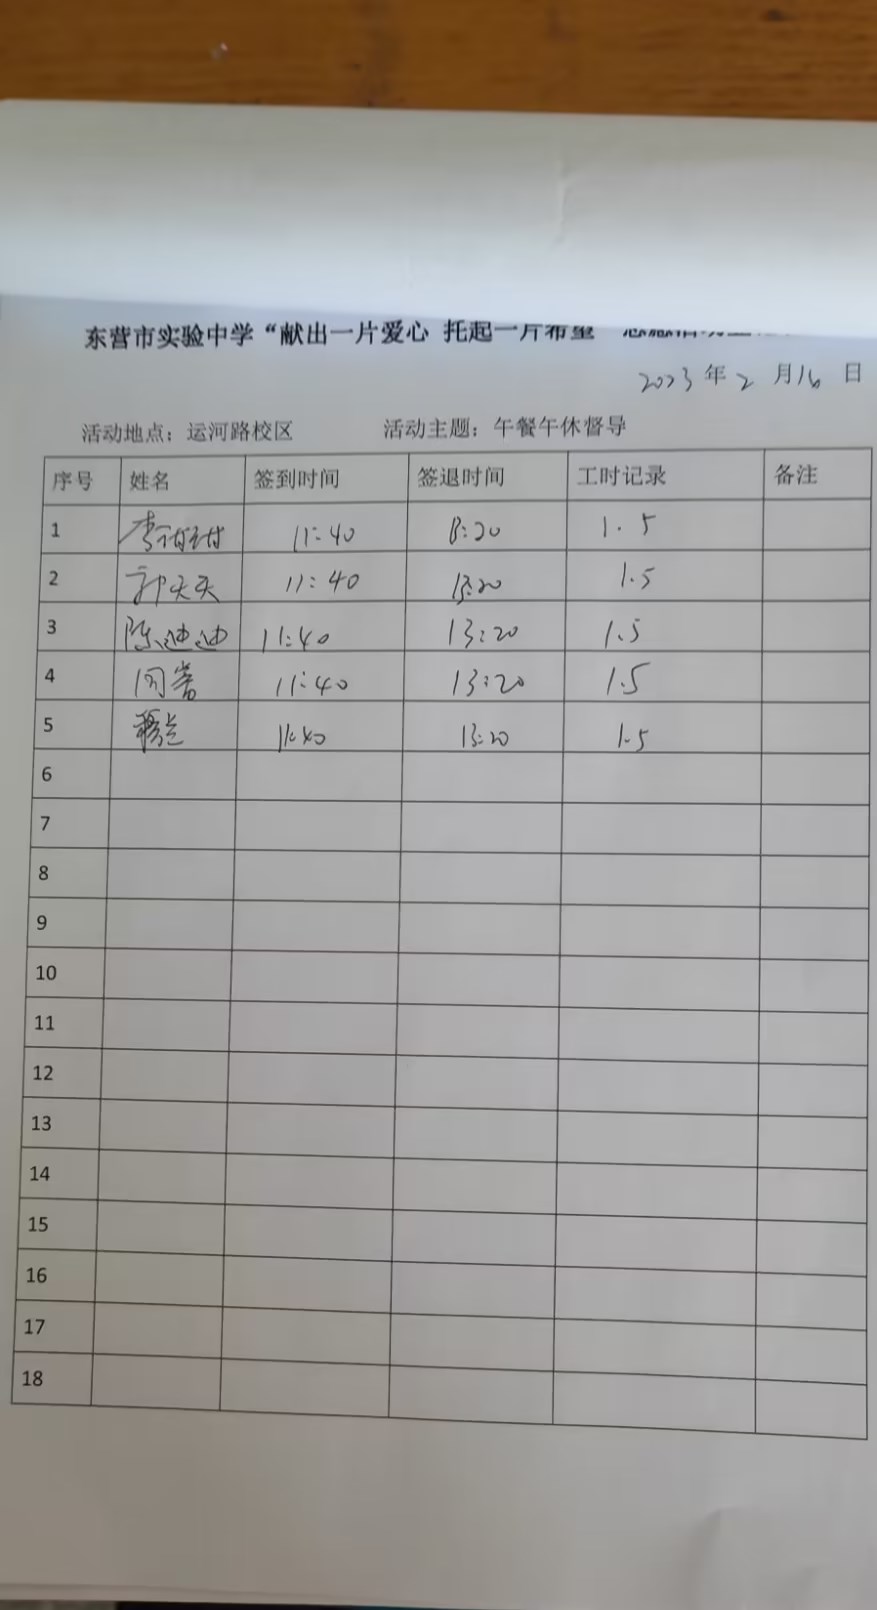 东营市实验中学“献出一片爱心 托起一片希望
2023 年 2 月 16 日
活动地点：运河路校区 活动主题：午餐午休督导
序号 姓名 签到时间 签退时间 工时记录 备注
1 11:40 13:20 1.5
2 天天 11:40 13:20 1.5
3 陈迪迪 11:40 13:20 1.5
4 11:40 13:20 1.5
5 11:40 13:20 1.5
6
7
8
9
10
11
12
13
14
15
16
17
18